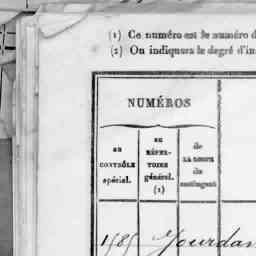 (1) Ce numéro est le numéro d
(2) On indiquera le degré d'in
NUMÉROS
au
CONTRÔLE
spécial.
au
RÉPER-
TOIRE
général.
(1)
de
LA LISTE
du
contingent
1585 Jourdan